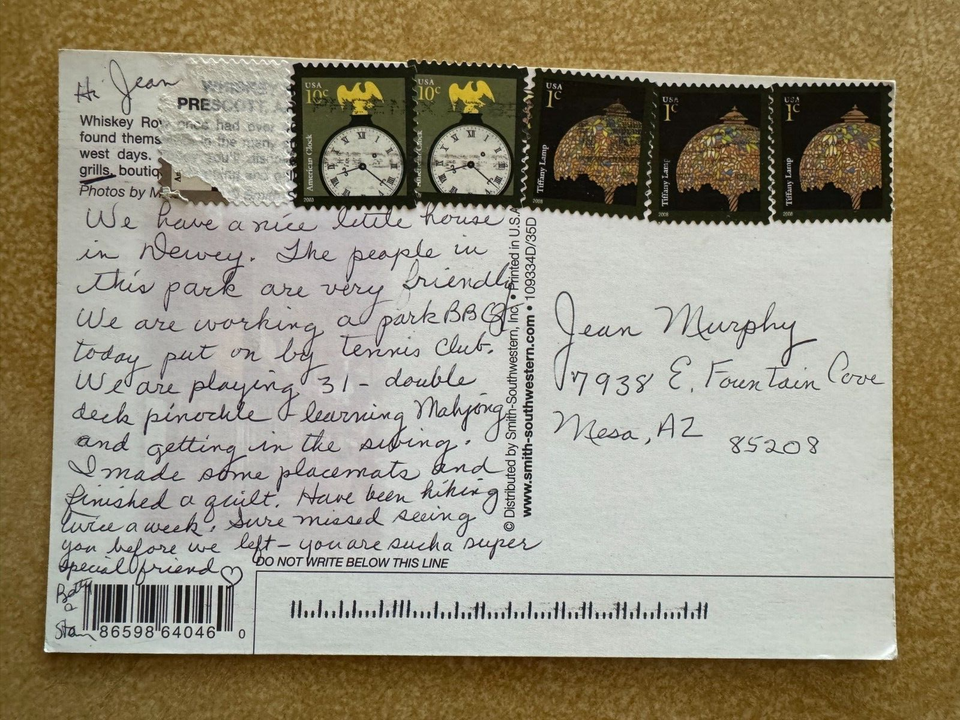 Hi Jean
WHISKEY
PRESCOTT, A
Whiskey Ro once had over
found thems in the many
west days. you'll dis
grills, boutiq
Photos by M
USA
10c
American Clock
2003
USA
10c
American Clock
USA
1c
Tiffany Lamp
2008
USA
1c
Tiffany Lamp
2008
USA
1c
Tiffany Lamp
2008
We have a nice little house
in Dewey. The people in
this park are very friendly
We are working a park BBQ
today put on by tennis club.
We are playing 31 - double
deck pinochle - learning Mahjong
and getting in the swing.
I made some placemats and
finished a quilt. Have been hiking
twice a week. Sure missed seeing
you before we left - you are such a super
special friend ♡
Betty
&
Stan
86598 64046 0
© Distributed by Smith-Southwestern, Inc. • Printed in U.S.A.
www.smith-southwestern.com • 109334D/35D
Jean Murphy
7938 E. Fountain Cove
Mesa, AZ 85208
DO NOT WRITE BELOW THIS LINE